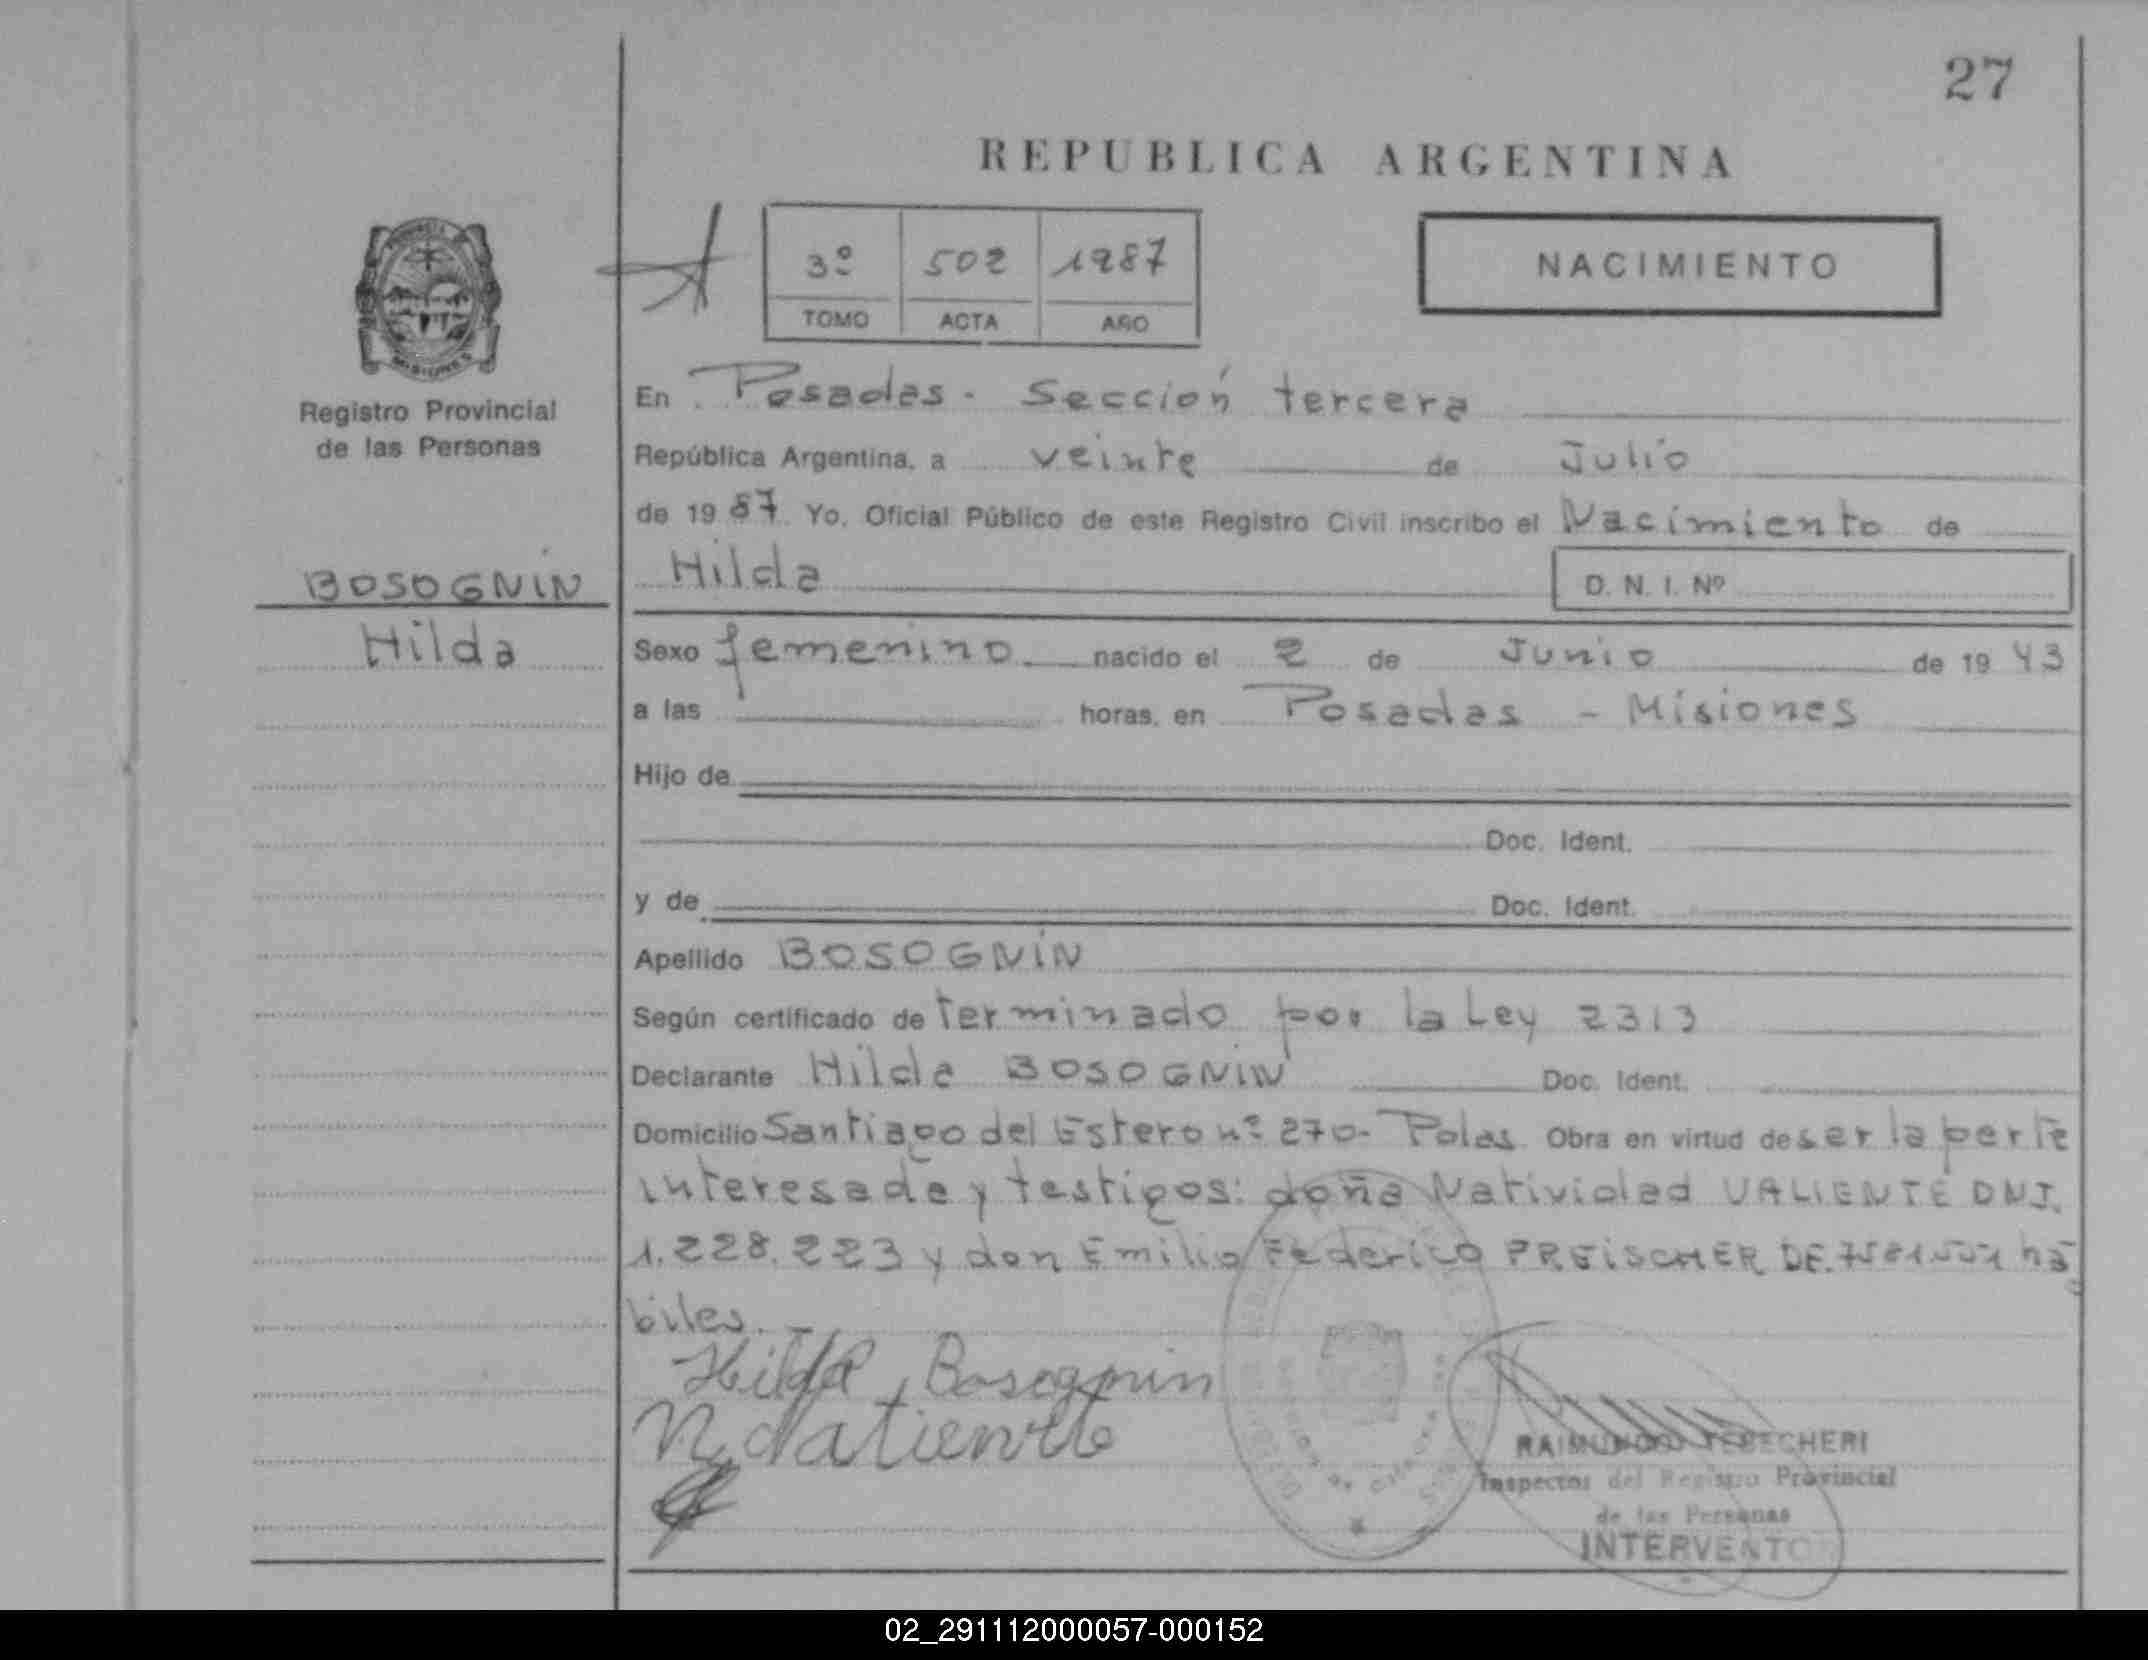 27
REPUBLICA ARGENTINA
3º 502 1987
TOMO ACTA AÑO
NACIMIENTO
MISIONES
Registro Provincial
de las Personas
En Posadas - Sección tercera
República Argentina, a veinte de Julio
de 1987 Yo, Oficial Público de este Registro Civil inscribo el Nacimiento de
BOSOGNIN
Hilda
Hilda
D. N. I. Nº
Sexo femenino nacido el 2 de Junio de 1943
a las horas, en Posadas - Misiones
Hijo de
Doc. Ident.
y de Doc. Ident.
Apellido BOSOGNIN
Según certificado de terminado por la Ley 2313
Declarante Hilda BOSOGNIN Doc. Ident.
Domicilio Santiago del Estero nº 270- Pdas. Obra en virtud de ser la parte
interesada y testigos: doña Natividad VALIENTE DNI.
1.228.223 y don Emilio Federico PREISCHER DE. há
biles.
Hilda Bosognin
RAIMUNDO TEBECHERI
Inspector del Registro Provincial
de las Personas
INTERVENTOR
02_291112000057-000152